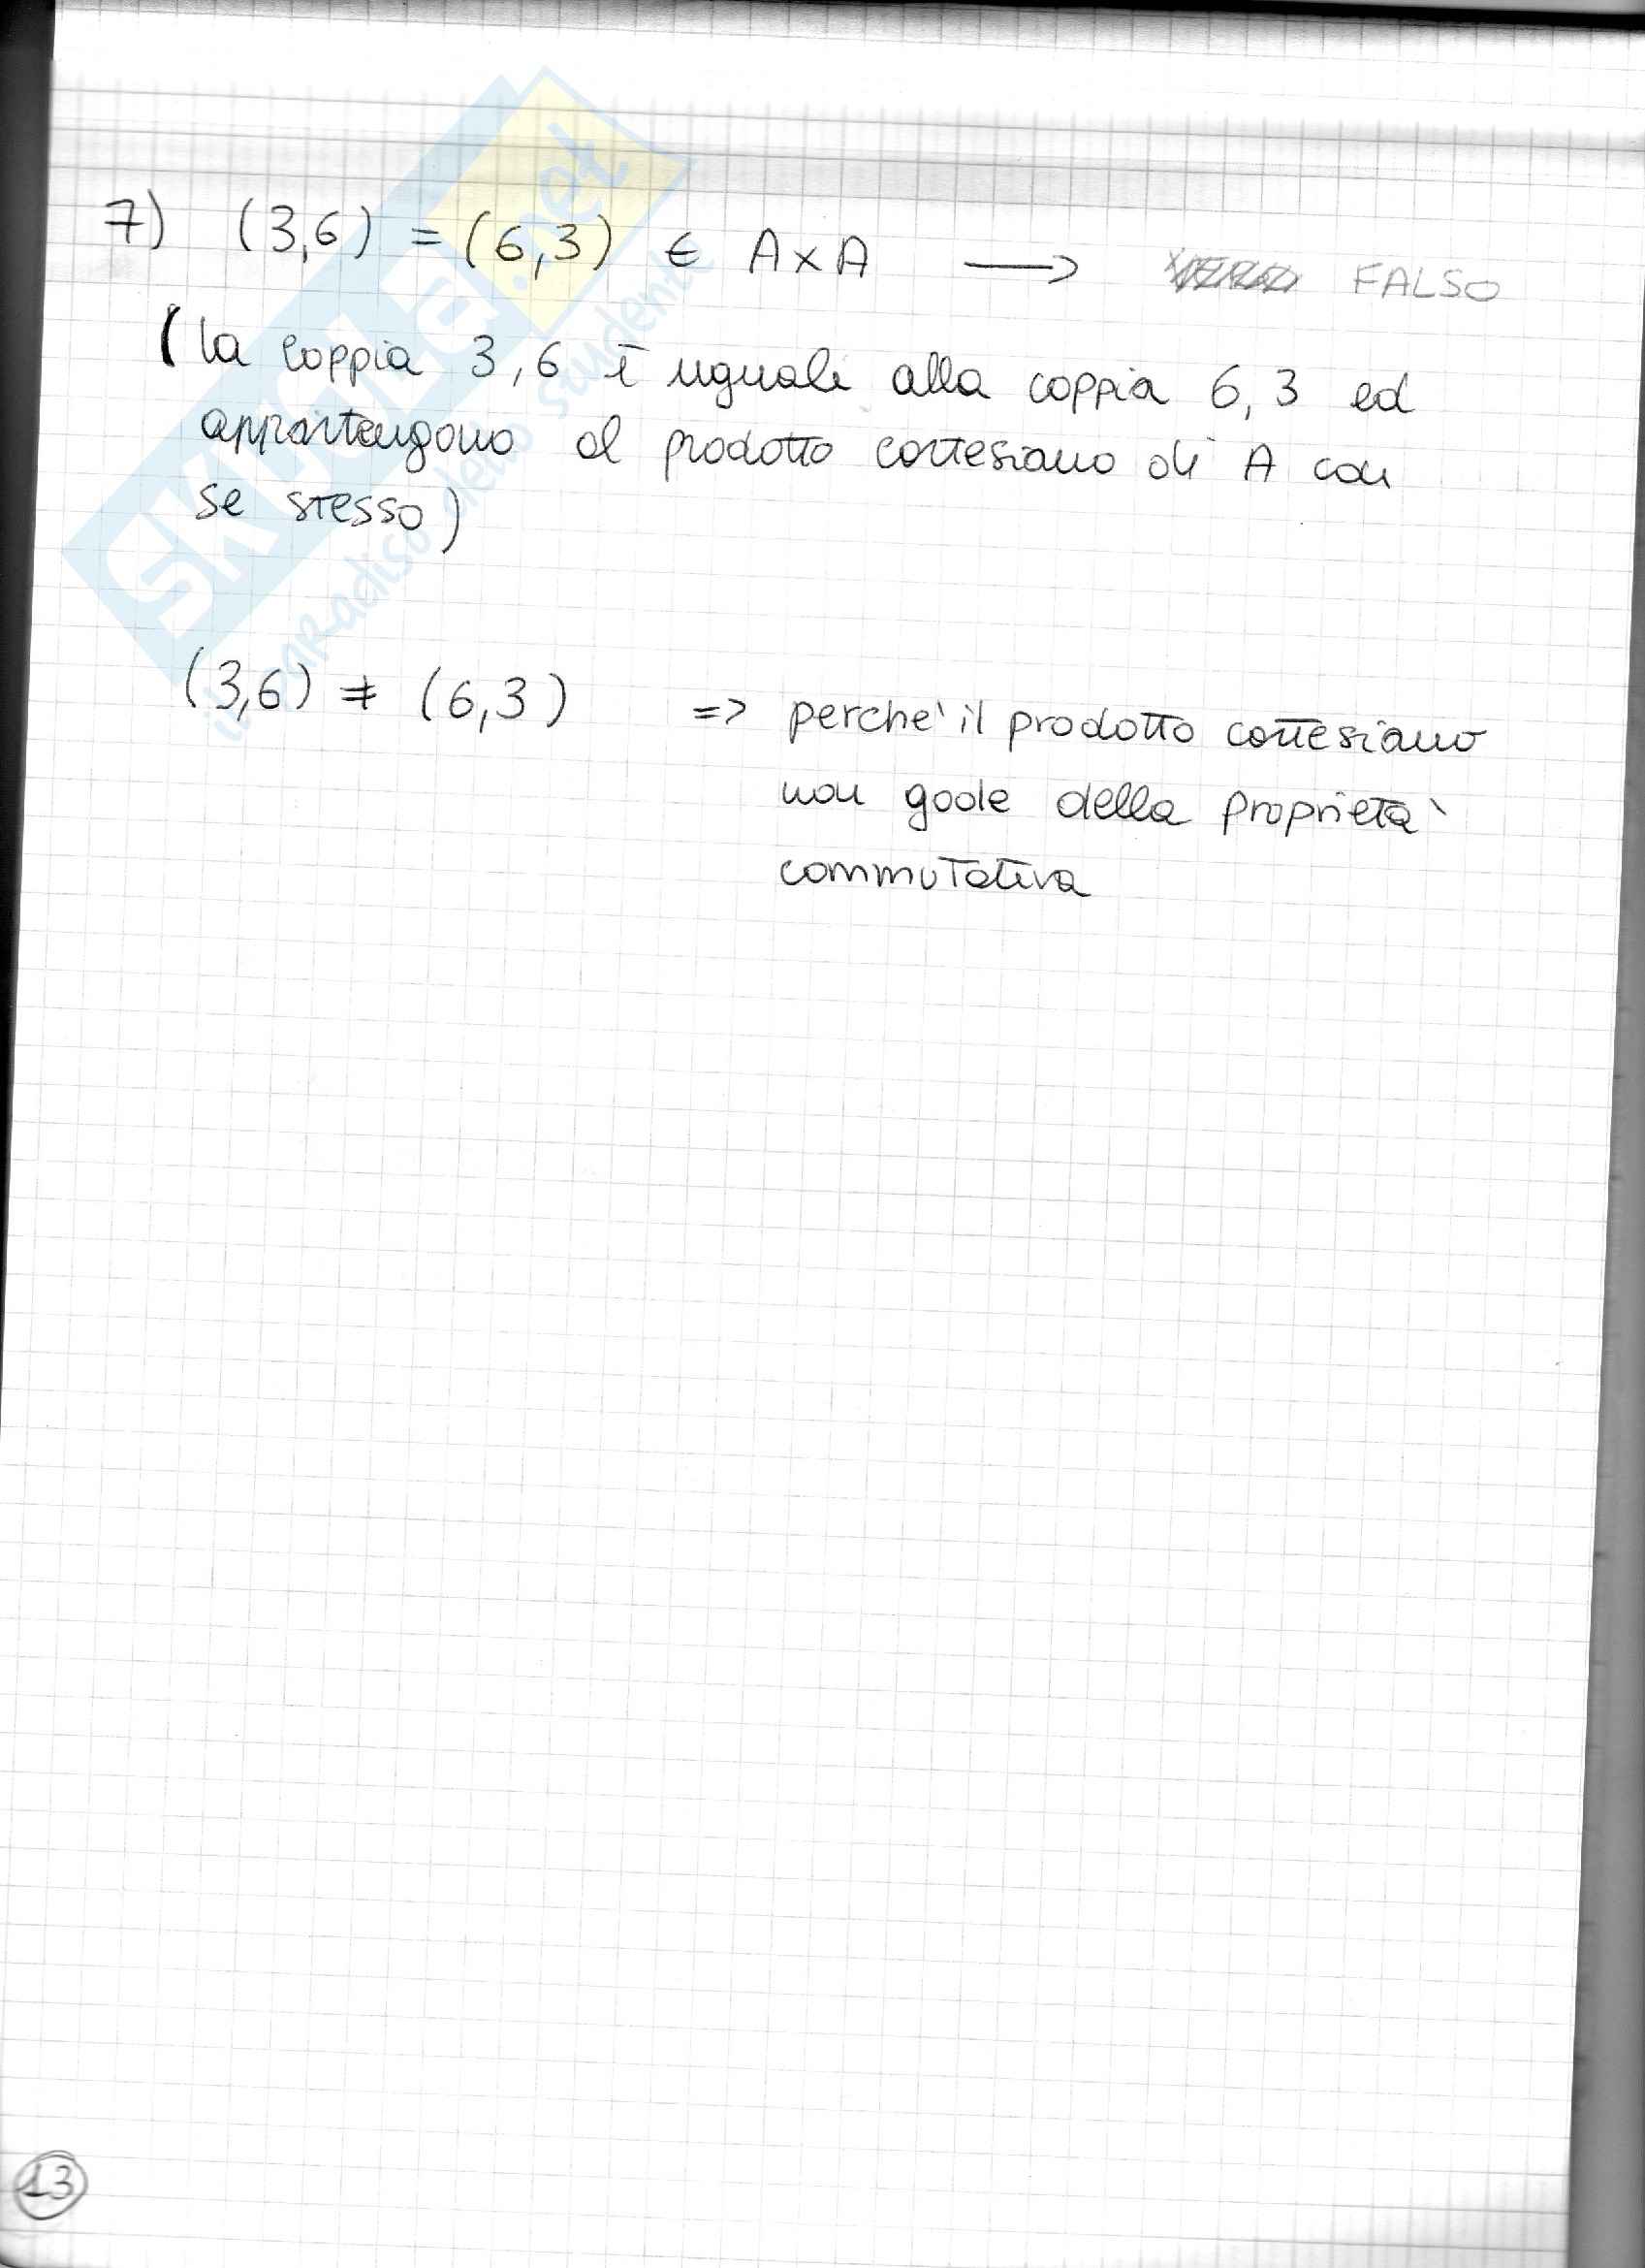 7) (3,6) = (6,3) ∈ A×A → FALSO
(la coppia 3,6 è uguale alla coppia 6,3 ed
appartengono al prodotto cartesiano di A con
se stesso)
(3,6) ≠ (6,3) => perche' il prodotto cartesiano
non gode della proprieta'
commutativa
13
SKUOLA.net
il paradiso dello studente